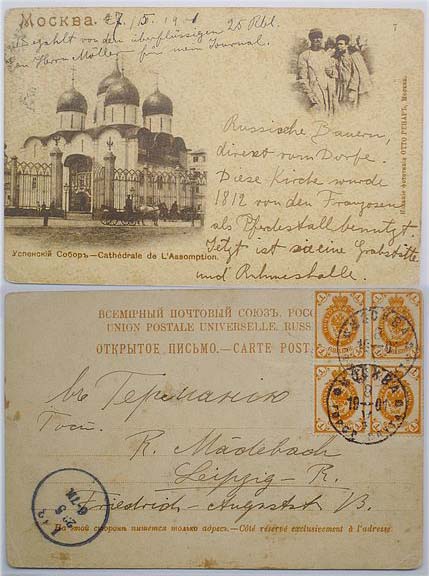 Москва. 17./5. 1901
Bezahlt von den überflüssigen 25 Rbl.
an Herrn Möller für mein Journal.
7
Russische Bauern,
direkt vom Dorfe.
Diese Kirche wurde
1812 von den Franzosen
als Pferdestall benutzt.
Jetzt ist sie eine Grabstätte
und Ruhmeshalle.
Успенскій Соборъ.—Cathédrale de L'Assomption.
Изданіе фотографіи ОТТО РЕНАРЪ, Москва.
ВСЕМІРНЫЙ ПОЧТОВЫЙ СОЮЗЪ. РОСС
UNION POSTALE UNIVERSELLE. RUSS
ОТКРЫТОЕ ПИСЬМО.—CARTE POST
МОСКВА
въ Германію
Госп.
R. Mädebach
Leipzig - R.
Friedrich - August B.
На этой сторонѣ пишется только адресъ.—Côté réservé exclusivement à l'adresse.